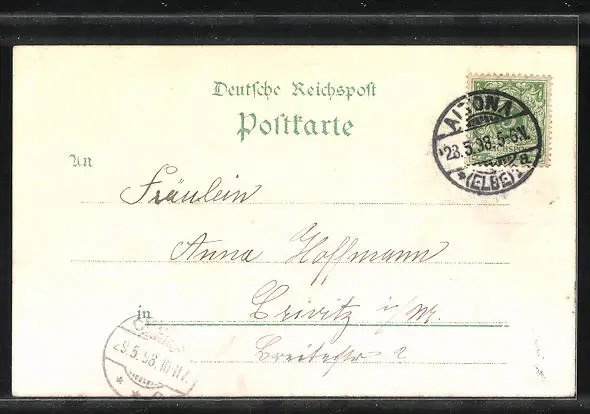 Deutsche Reichspost
Postkarte
ALTONA
23.5.98.5-6N.
2a
*(ELBE)*
An
Fräulein
Anna Hoffmann
in Crivitz i/M.
Breitestr 2
29.5.98.10-11